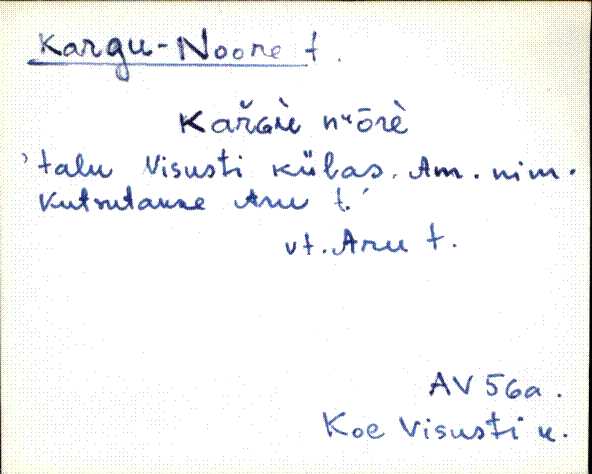 Kargu-Noore t.
nᵘōrè̀
'talu Visusti külas. Am. nim.
Kutsutakse Aru t.'
vt. Aru t.
AV 56a.
Koe Visusti k.